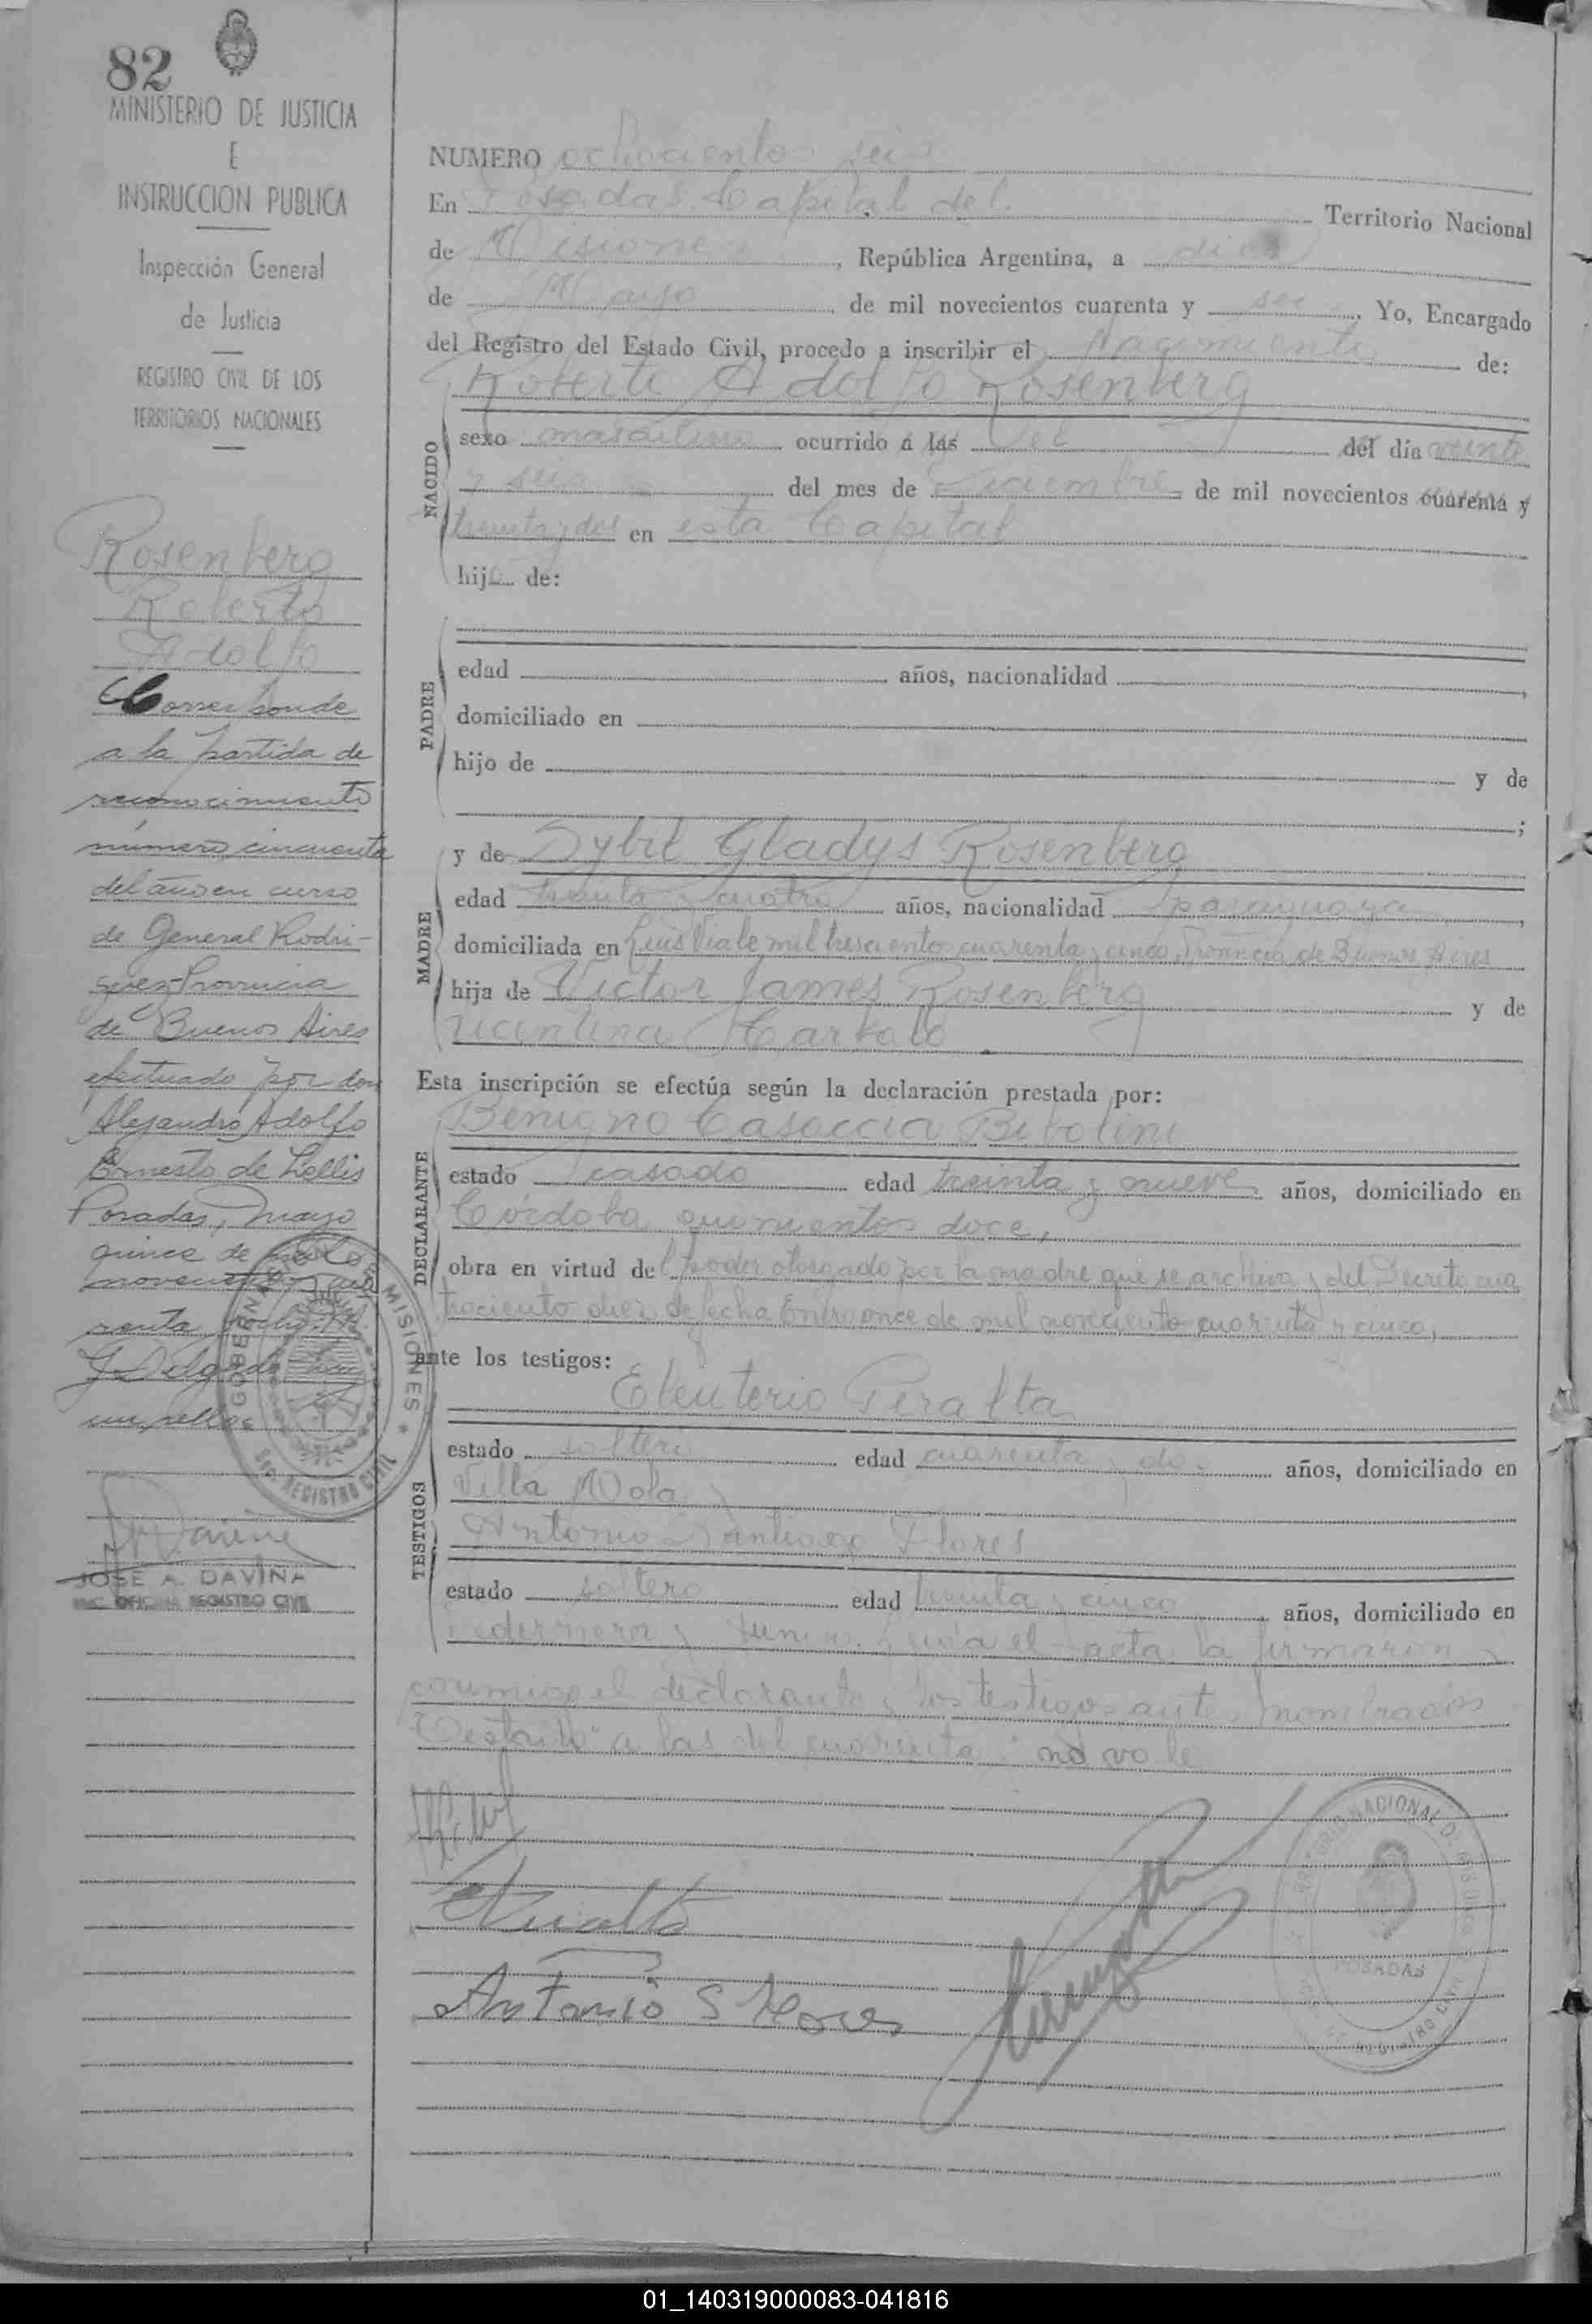 82
MINISTERIO DE JUSTICIA
E
INSTRUCCION PUBLICA
Inspección General
de Justicia
REGISTRO CIVIL DE LOS
TERRITORIOS NACIONALES
Rosenberg
Roberto
Adolfo
Corresponde
a la partida de
reconocimiento
número cincuenta
del año en curso
de General Rodri-
guez-Provincia
de Buenos Aires
efectuado por don
Alejandro Adolfo
Ernesto de Lellis
Posadas, mayo
quince de mil
novecientos cua
renta
un sello
JOSE A. DAVIÑA
ENC. OFICINA REGISTRO CIVIL
GOBERNACION DE MISIONES
REGISTRO CIVIL
NUMERO ochocientos seis
En Posadas, Capital del Territorio Nacional
de Misiones, República Argentina, a diez
de Mayo de mil novecientos cuarenta y seis. Yo, Encargado
del Registro del Estado Civil, procedo a inscribir el Nacimiento de:
Roberto Adolfo Rosenberg
NACIDO
sexo masculino ocurrido a las del del día veinte
y seis del mes de Diciembre de mil novecientos cuarenta y
treinta y dos en esta Capital
hijo de:
PADRE
edad años, nacionalidad ,
domiciliado en
hijo de y de
;
MADRE
y de Sybil Gladys Rosenberg
edad treinta y cuatro años, nacionalidad paraguaya ,
domiciliada en Luis Viale mil trescientos cuarenta y cinco, Provincia de Buenos Aires
hija de Victor James Rosenberg y de
Vicentina Carbalo
Esta inscripción se efectúa según la declaración prestada por:
DECLARANTE
Benigno Casaccia Bibolini
estado casado edad treinta y nueve años, domiciliado en
Córdoba quinientos doce,
obra en virtud del poder otorgado por la madre que se archiva y del Decreto cua
trociento diez de fecha Enero once de mil novecientos cuarenta y cinco,
ante los testigos:
TESTIGOS
Eleuterio Peralta
estado soltero edad cuarenta y dos años, domiciliado en
Villa Mola y
Antonio Santiago Flores
estado soltero edad treinta y cinco años, domiciliado en
y Junin. Leída el acta la firmaron
conmigo el declarante y los testigos antes nombrados
Testado "a las del cuarenta" no vale
Antonio S Flores
POSADAS
REGISTRO CIVIL
01_140319000083-041816